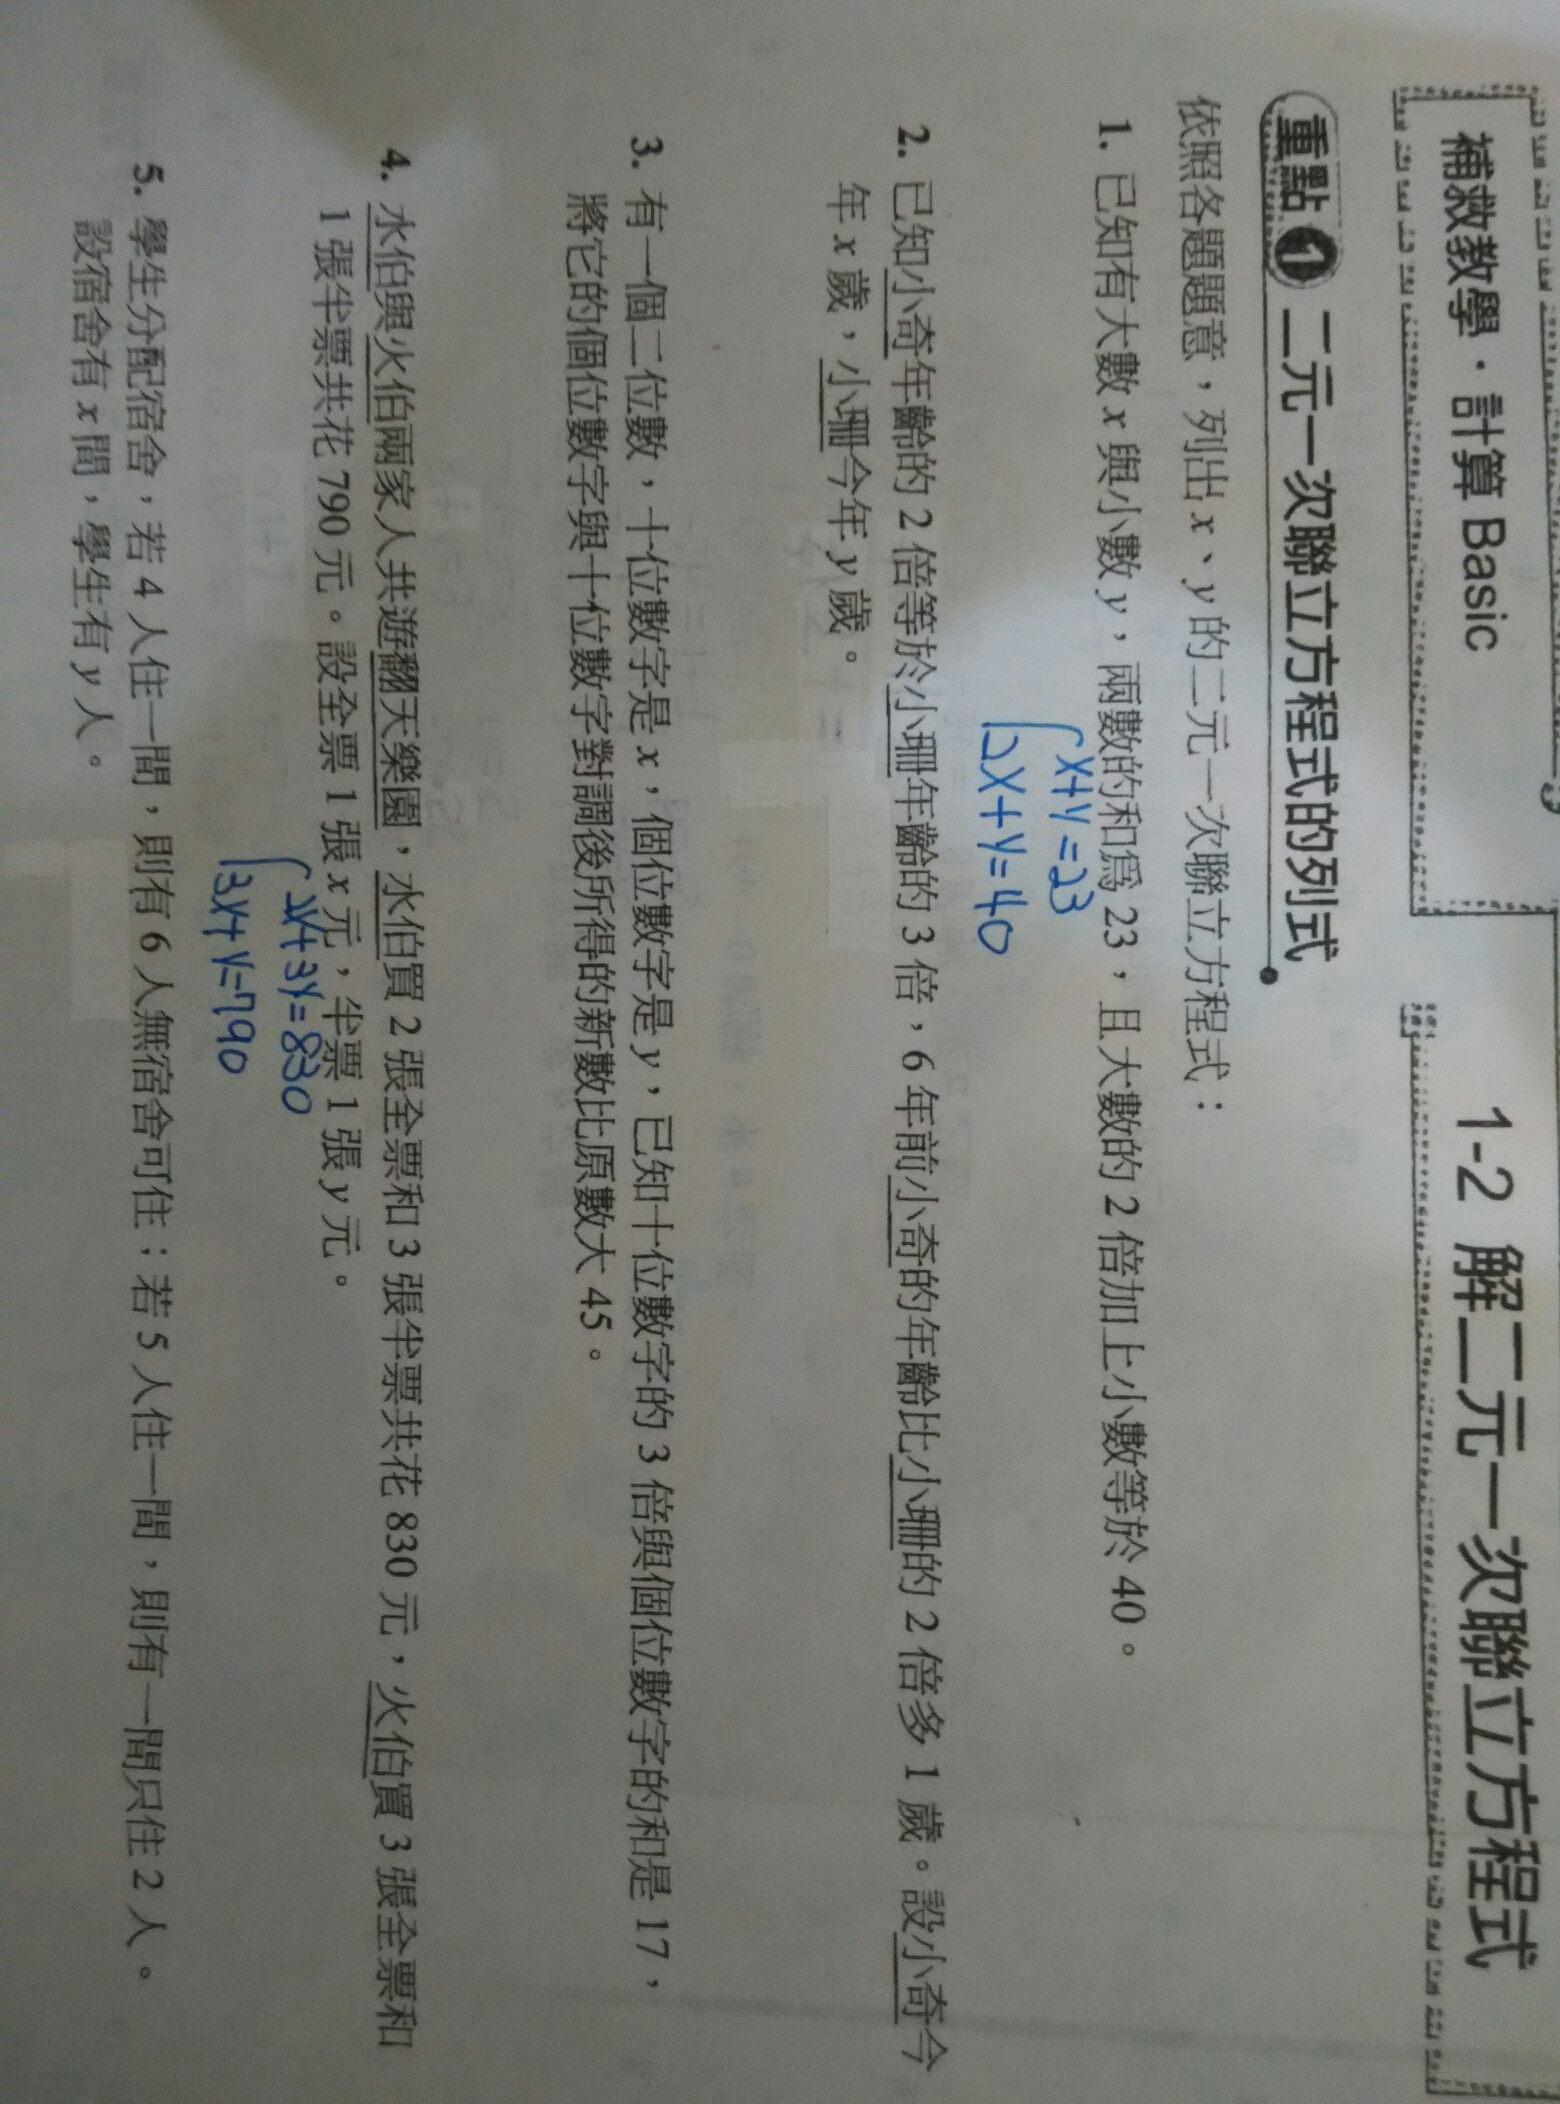 補救教學・計算 Basic
1-2 解二元一次聯立方程式
重點 1 二元一次聯立方程式的列式
依照各題題意，列出 x、y 的二元一次聯立方程式：
1. 已知有大數 x 與小數 y，兩數的和為 23，且大數的 2 倍加上小數等於 40。
x+y=23
2x+y=40
2. 已知小奇年齡的 2 倍等於小珊年齡的 3 倍，6 年前小奇的年齡比小珊的 2 倍多 1 歲。設小奇今
年 x 歲，小珊今年 y 歲。
3. 有一個二位數，十位數字是 x，個位數字是 y，已知十位數字的 3 倍與個位數字的和是 17，
將它的個位數字與十位數字對調後所得的新數比原數大 45。
4. 水伯與火伯兩家人共遊翻天樂園，水伯買 2 張全票和 3 張半票共花 830 元，火伯買 3 張全票和
1 張半票共花 790 元。設全票 1 張 x 元，半票 1 張 y 元。
2x+3y=830
3x+y=790
5. 學生分配宿舍，若 4 人住一間，則有 6 人無宿舍可住；若 5 人住一間，則有一間只住 2 人。
設宿舍有 x 間，學生有 y 人。